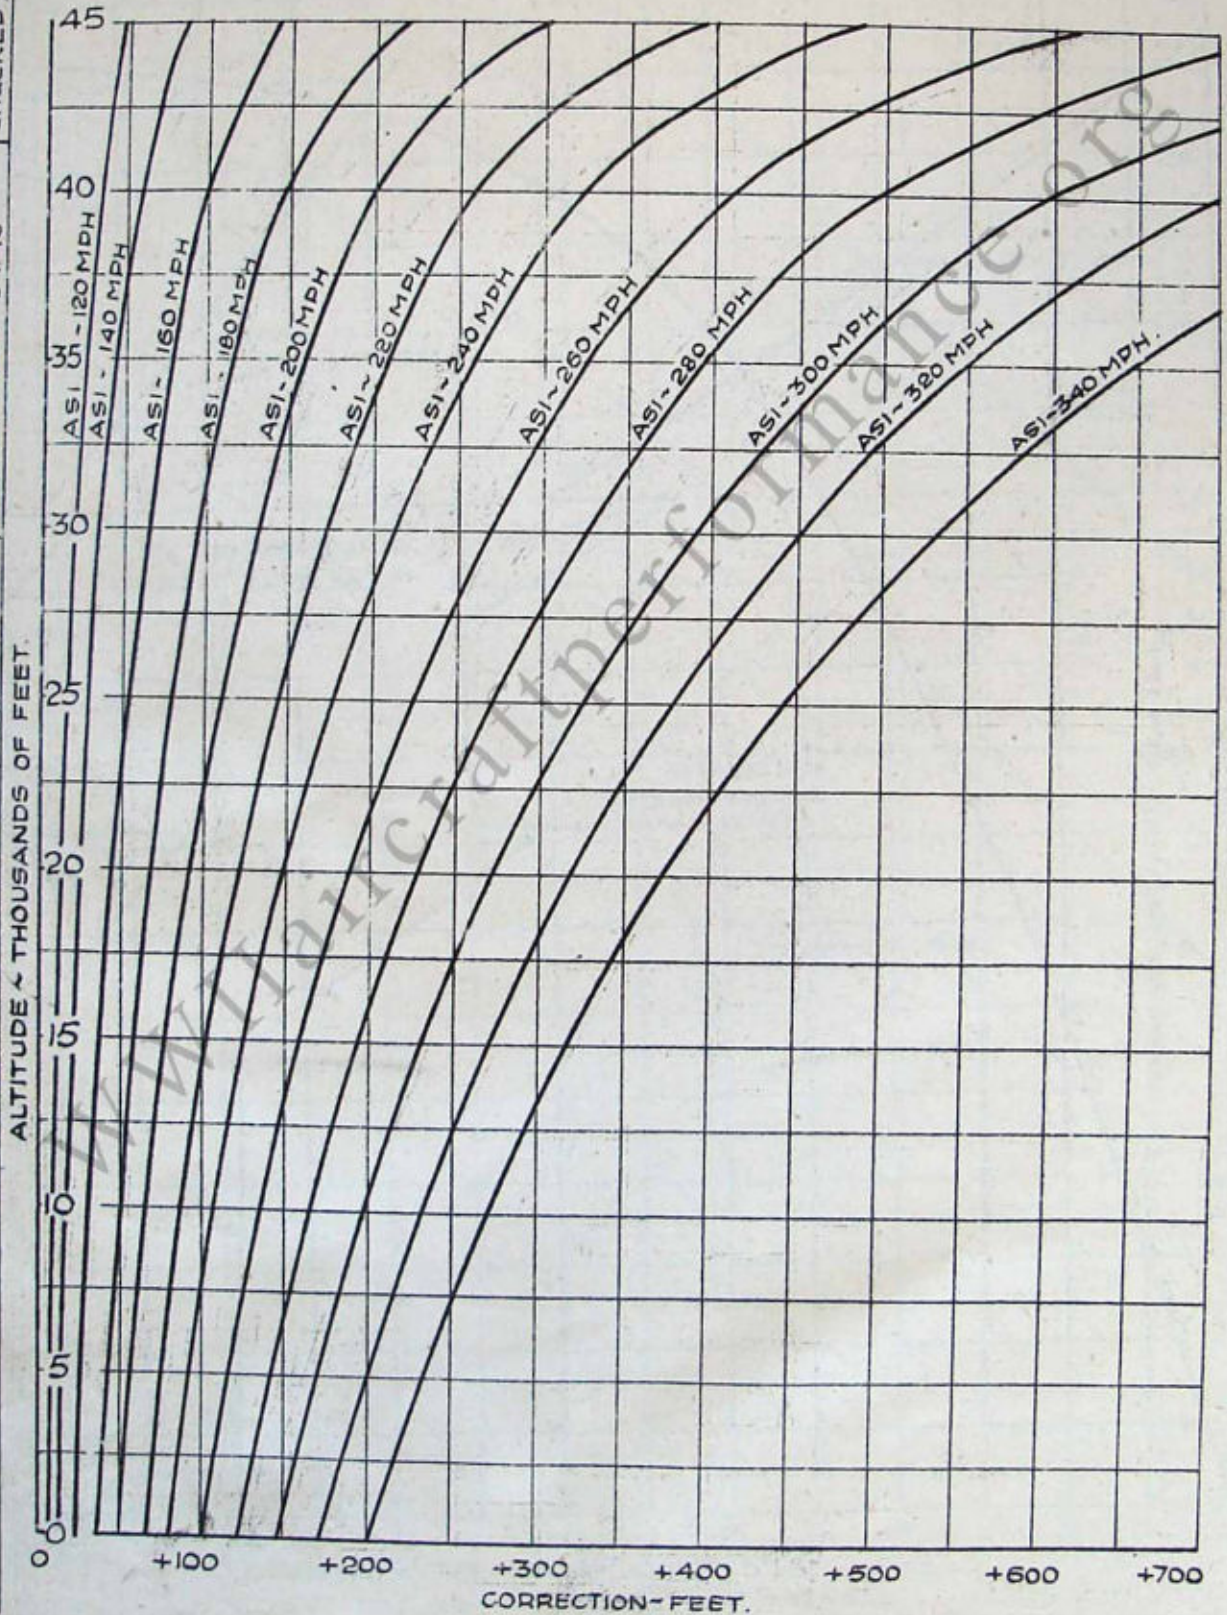 45
40
35
30
25
20
15
10
5
0
ALTITUDE ~ THOUSANDS OF FEET.
ASI - 120 MPH
ASI - 140 MPH
ASI ~ 160 MPH
ASI - 180 MPH
ASI - 200 MPH
ASI ~ 220 MPH
ASI ~ 240 MPH
ASI ~ 260 MPH
ASI ~ 280 MPH
ASI ~ 300 MPH
ASI ~ 320 MPH
ASI ~ 340 MPH.
0 +100 +200 +300 +400 +500 +600 +700
CORRECTION ~ FEET.
WWIIaircraftperformance.org